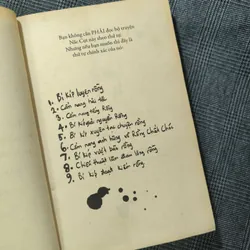 Bạn không cần PHẢI đọc bộ truyện
Nấc Cụt này theo thứ tự.
Nhưng nếu bạn muốn thì đây là
thứ tự chính xác của nó:
1. Bí kíp luyện rồng
2. Cẩm nang hải tặc
3. Cẩm nang tiếng Rồng
4. Bí kíp nguyền Rồng
5. Bí kíp xuyên tai chuyện rồng
6. Cẩm nang anh hùng về Rồng Chết Chóc
7. Bí kíp vượt bão rồng
8. Chiến thuật làm đau lòng rồng
9. Bí kíp đoạt kiếm rồng